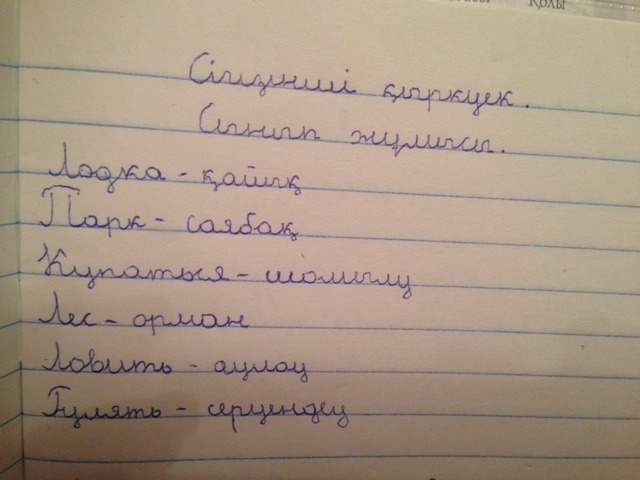 Қолы
Сегізінші қыркүек.
Сынып жұмысы.
Лодка - қайық
Парк - саябақ
Купаться - шомылу
Лес - орман
Ловить - аулау
Гулять - серуендеу